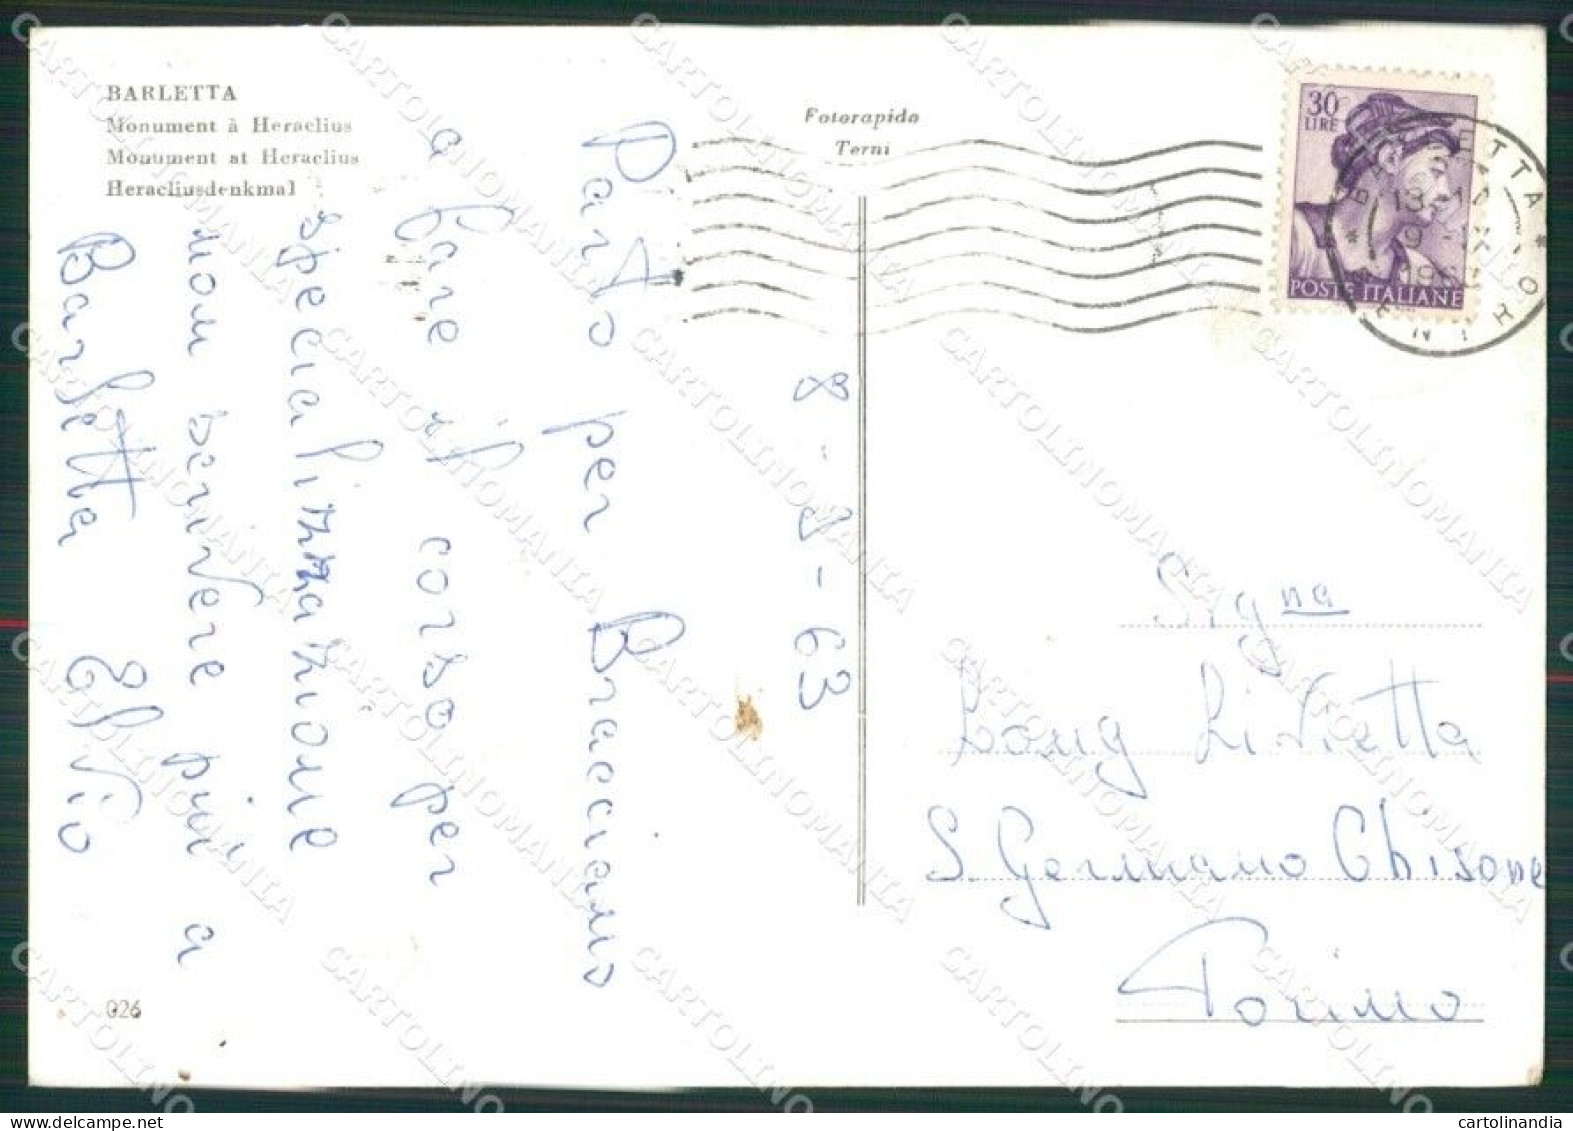 BARLETTA
Monument à Heraclius
Monument at Heraclius
Heracliusdenkmal
Fotorapida
Terni
30
LIRE
POSTE ITALIANE
BARLETTA
CENTRO
1963
8-9-63
Parto per Bracciano
a fare il corso per
specializzazione
non scrivere più a
Barletta Elvio
Signa
Long Livietta
S. Germano Chisone
Torino
026
CARTOLINOMANIA
cartolinandia